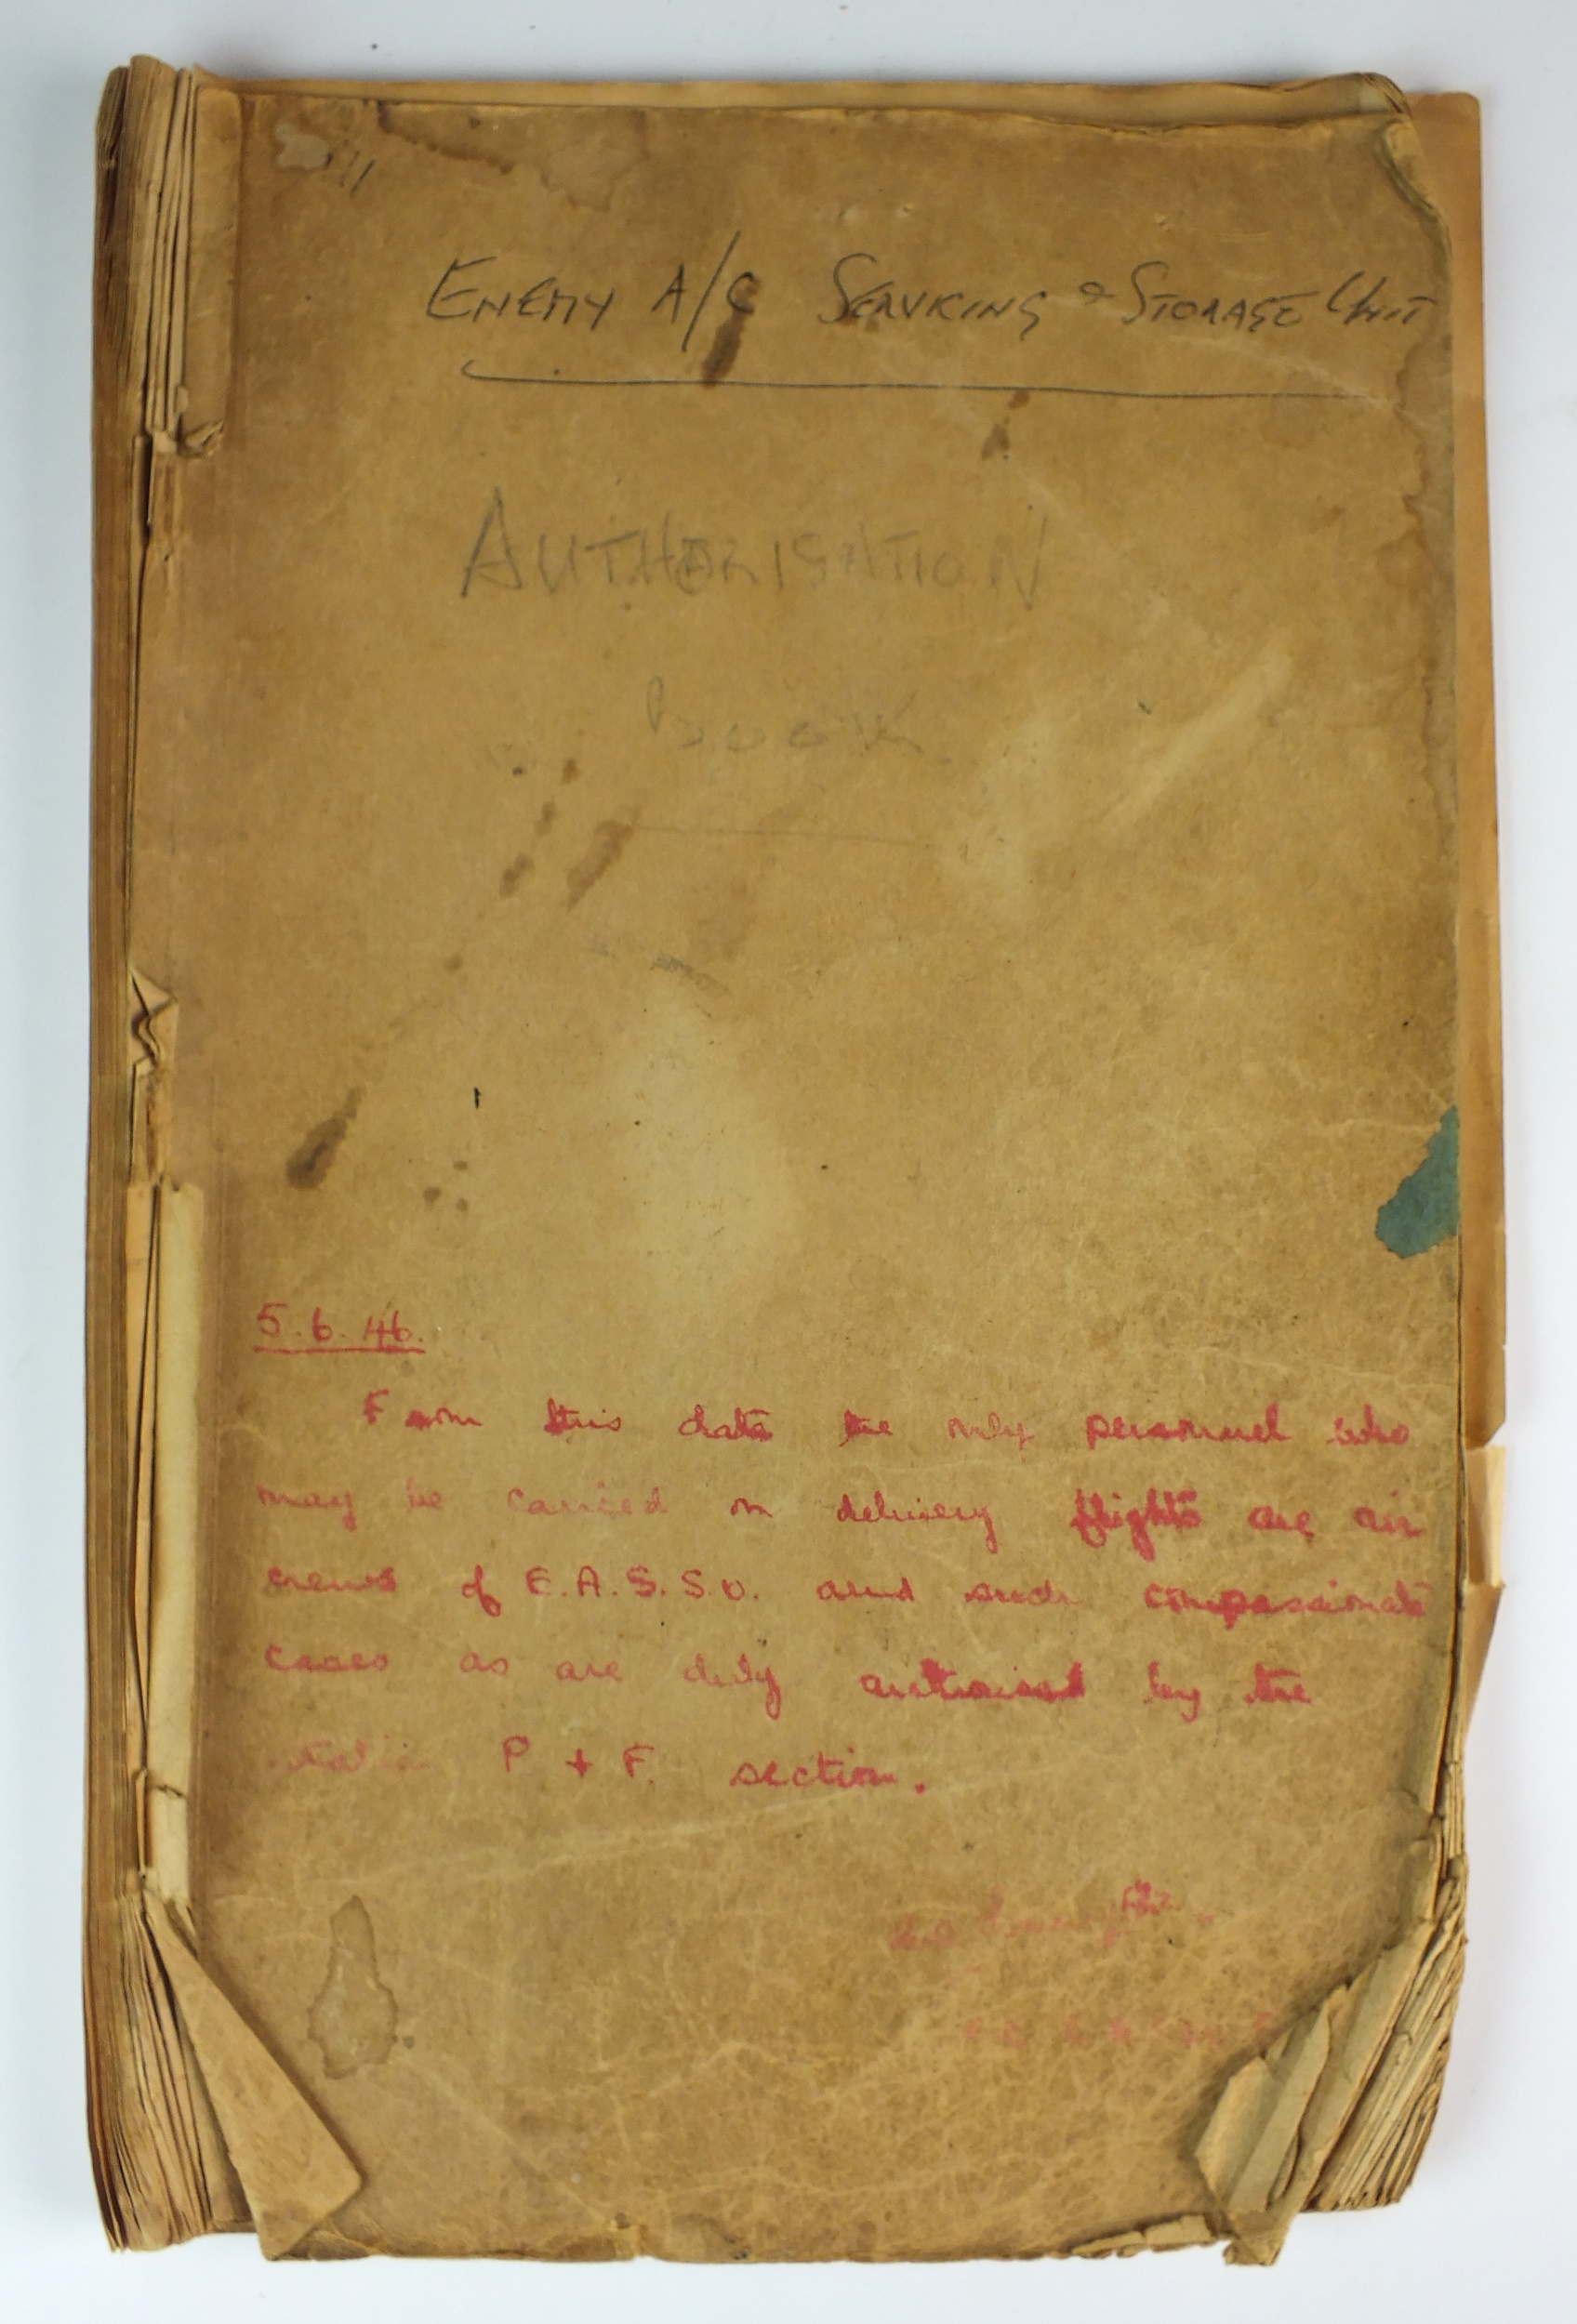 ENEMY A/C SERVICING & STORAGE UNIT
AUTHORISATION
BOOK
5.6.46.
From this date the only personnel who
may be carried on delivery flights are air
crews of E.A.S.S.U. and such compassionate
cases as are duly authorised by the
station P + F. section.